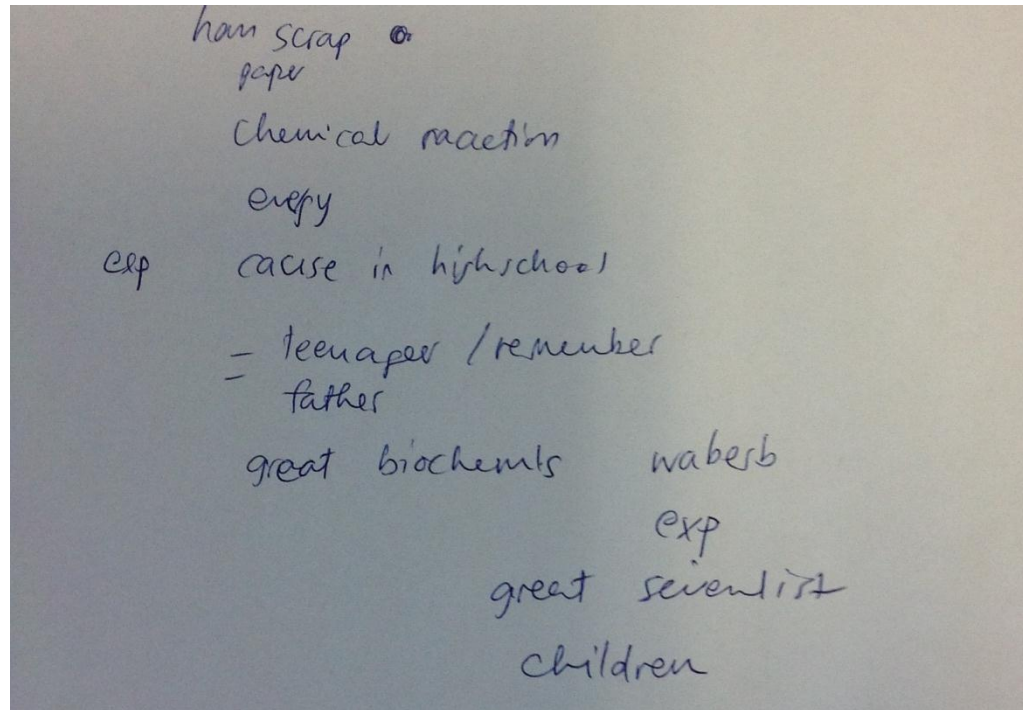 ham scrap
paper
chemical raaction
enegy
exp cause in highschool
= teenager / remember
father
great biochemits
exp
great scienlist
children